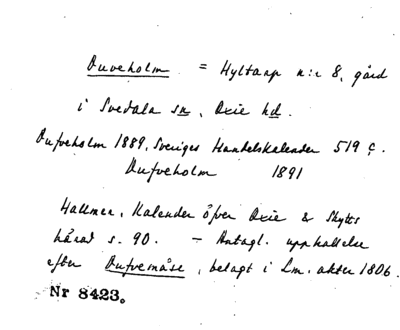 Duveholm = Hyltarp n:r 8, gård
i Svedala sn, Oxie hd.
Dufveholm 1889, Sveriges Handelskalender 519 c.
Dufveholm 1891
Hallmen, Kalender öfver Oxie & Skytts
härad s. 90. – Antagl. uppkallelse
efter Dufvemåse, belagt i Lm. akter 1806.
Nr 8423.